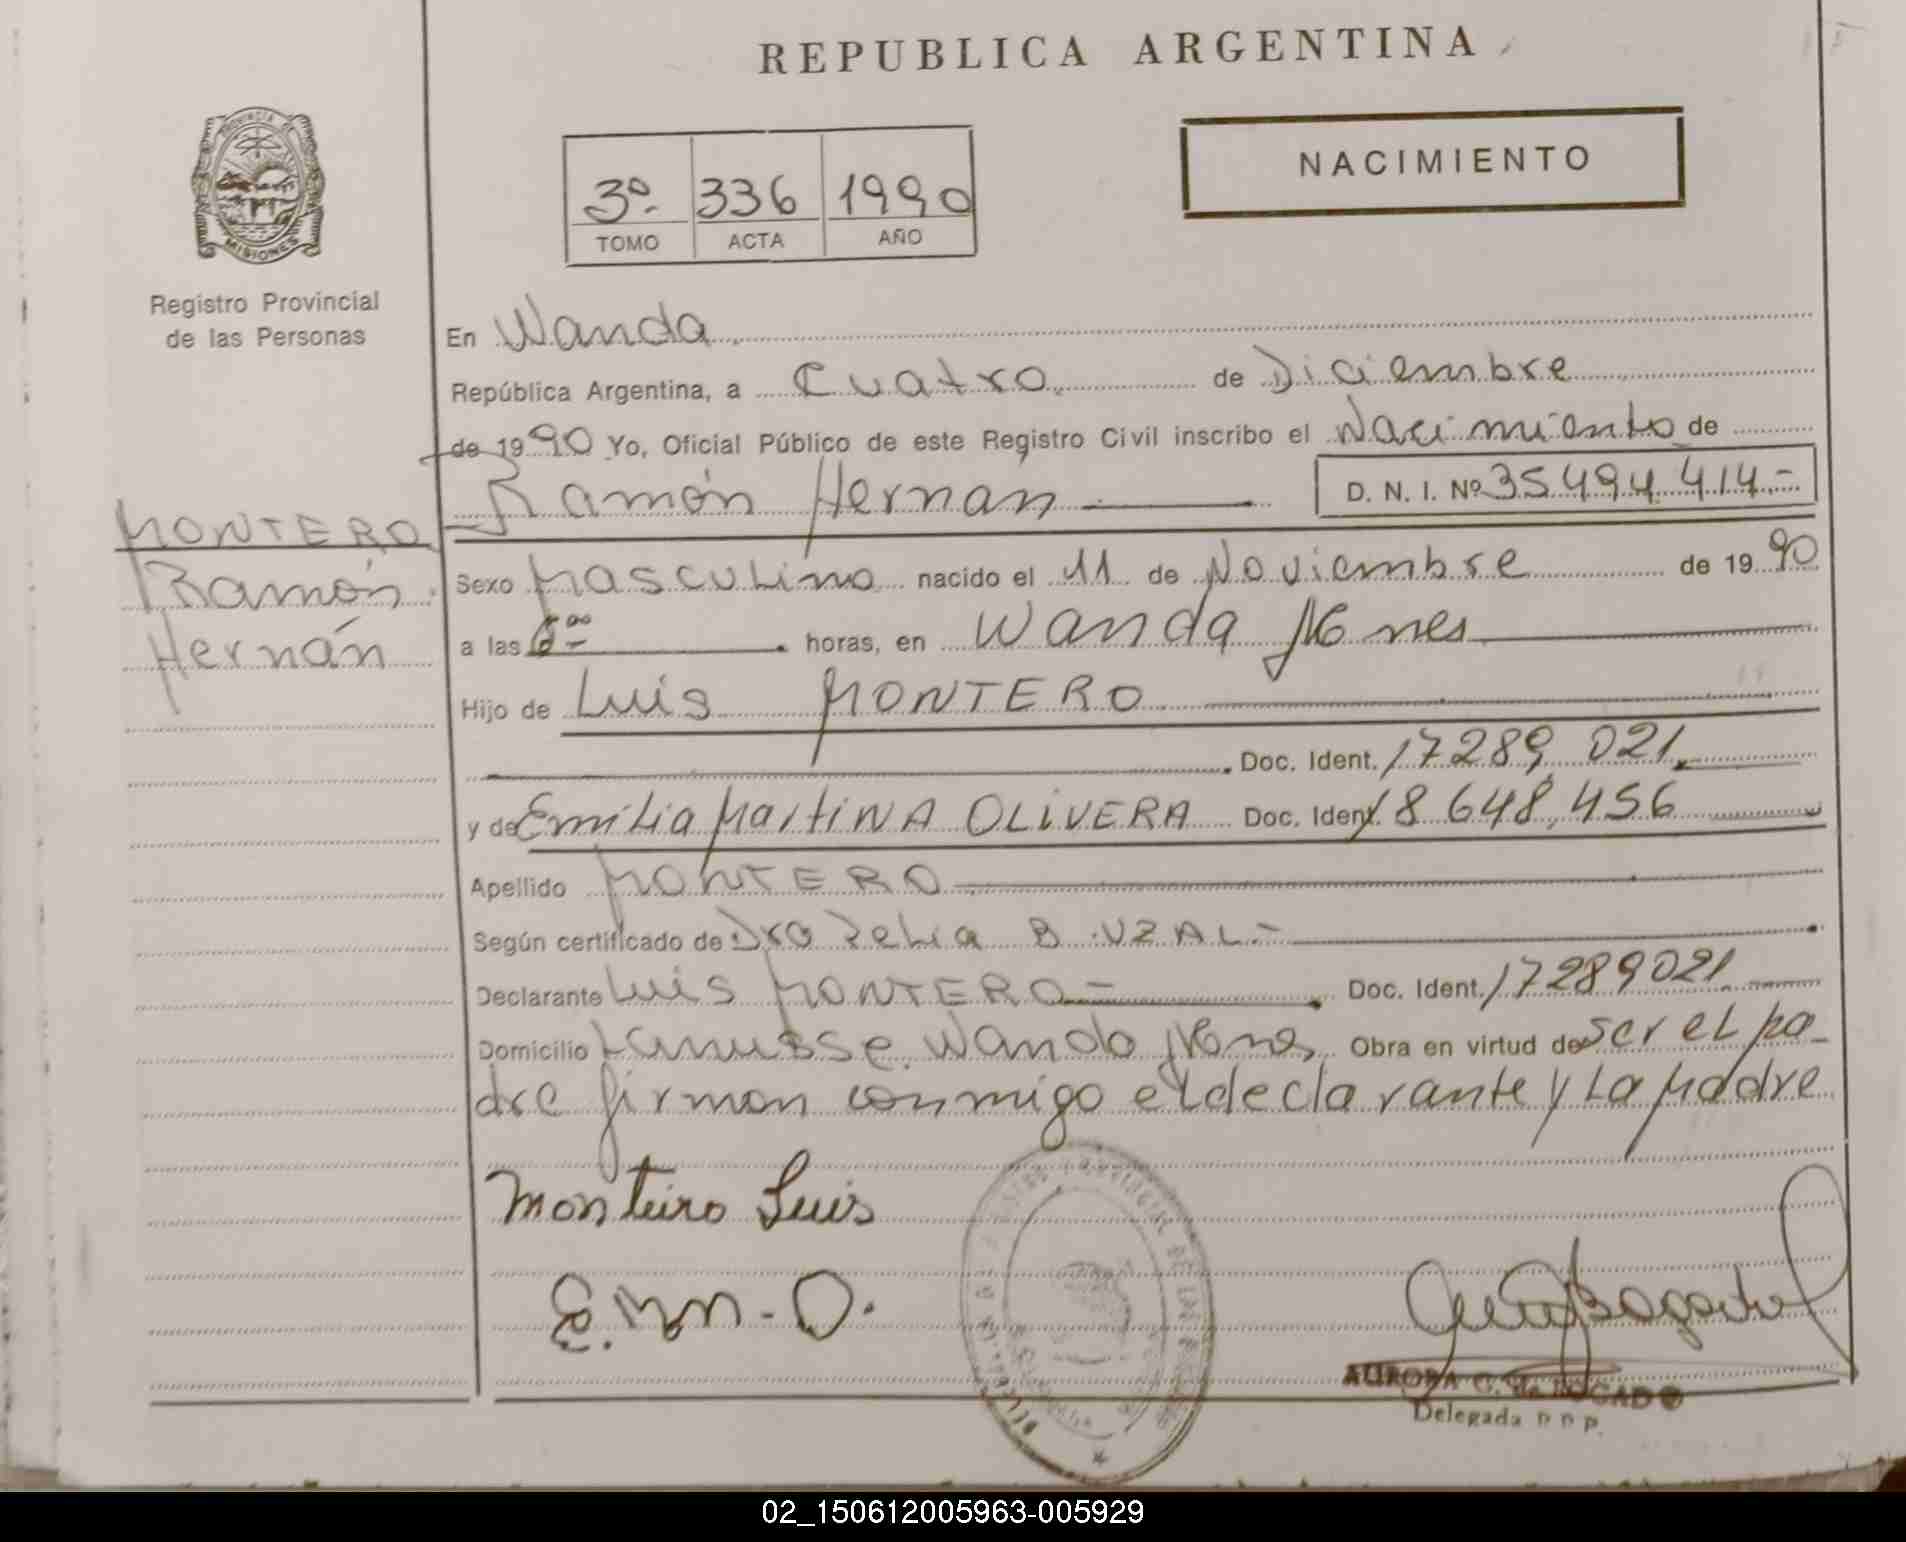 REPUBLICA ARGENTINA
PROVINCIA DE
MISIONES
Registro Provincial
de las Personas
3º 336 1990
TOMO ACTA AÑO
NACIMIENTO
En Wanda
República Argentina, a Cuatro de Diciembre
de 1990 Yo, Oficial Público de este Registro Civil inscribo el Nacimiento de
Ramón Hernán D. N. I. Nº 35494 414.-
MONTERO
Ramón
Hernán
Sexo Masculino nacido el 11 de Noviembre de 1990
a las 6:00 horas, en Wanda Mnes
Hijo de Luis MONTERO
Doc. Ident. 17289.021
y de Emilia Martina OLIVERA Doc. Ident. 18648.456
Apellido MONTERO
Según certificado de Dra Delia B. UZAL.-
Declarante Luis MONTERO- Doc. Ident. 17289021
Domicilio Lanusse. Wanda Mnes Obra en virtud de ser el pa-
dre firman conmigo el declarante y La Madre
Monteiro Luis
E. M. O.
AURORA C. de BOGADO
Delegada
02_150612005963-005929